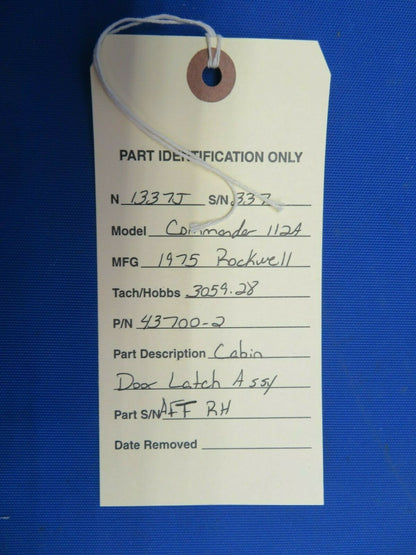 PART IDENTIFICATION ONLY
N 1337J S/N 337
Model Commander 112A
MFG 1975 Rockwell
Tach/Hobbs 3059.28
P/N 43700-2
Part Description Cabin
Door Latch Assy
Part S/N AFT RH
Date Removed